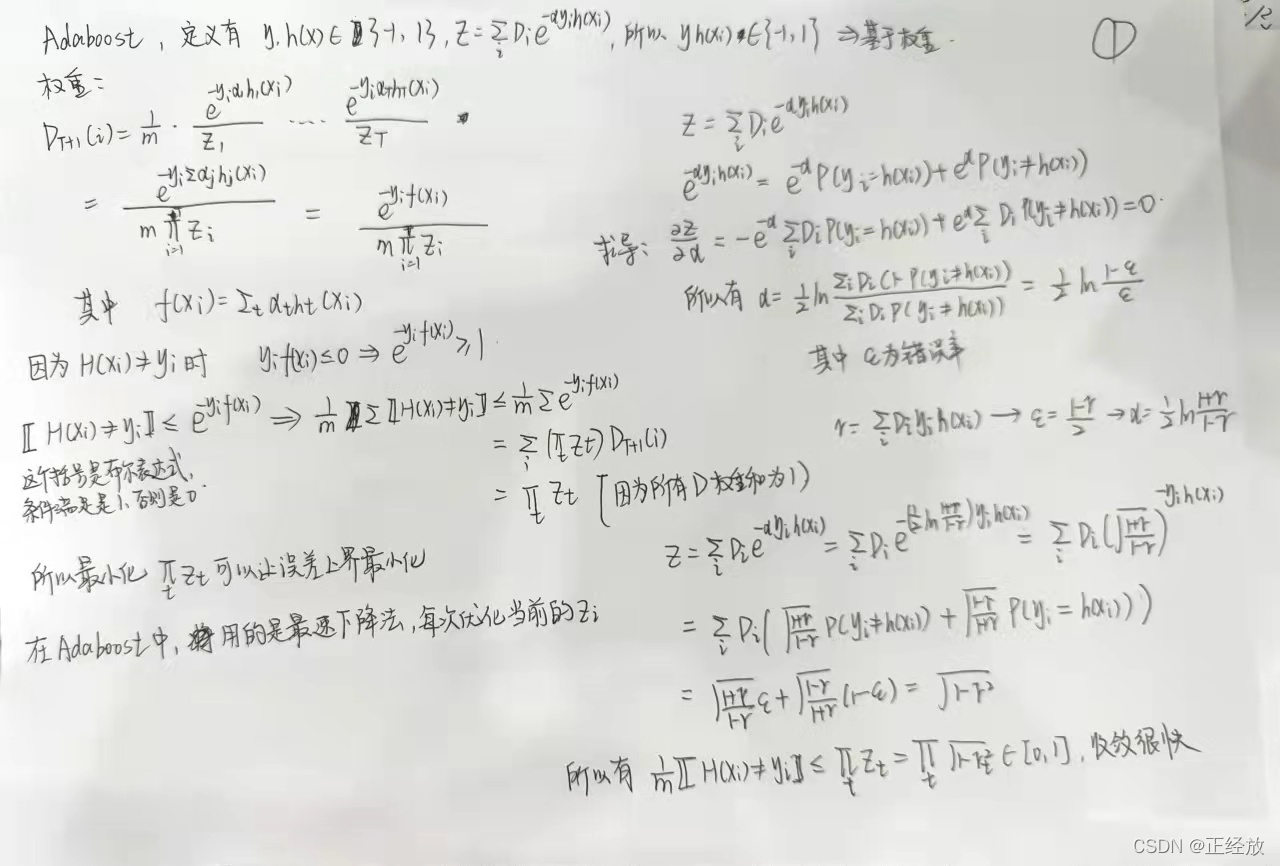 Adaboost, 定义有 y, h(x) ∈ {-1, 1}, Z = Σ_i D_i e^{-αy_i h(x_i)}, 所以 yh(x_i) ∈ {-1, 1} ⇒ 基于权重.
①
权重:
D_{T+1}(i) = 1/m · e^{-y_i α_1 h_1(x_i)}/Z_1 ···· e^{-y_i α_T h_T(x_i)}/Z_T
= e^{-y_i Σ α_j h_j(x_i)} / (m ∏_{i=1}^T Z_i) = e^{-y_i f(x_i)} / (m ∏_{i=1}^T Z_i)
其中 f(x_i) = Σ_t α_t h_t(x_i)
因为 H(x_i) ≠ y_i 时 y_i f(x_i) ≤ 0 ⇒ e^{-y_i f(x_i)} ≥ 1
⟦H(x_i) ≠ y_i⟧ ≤ e^{-y_i f(x_i)} ⇒ 1/m Σ ⟦H(x_i) ≠ y_i⟧ ≤ 1/m Σ e^{-y_i f(x_i)}
这个括号是布尔表达式,
条件满足是1, 否则是0.
= Σ_i (∏_t Z_t) D_{T+1}(i)
= ∏_t Z_t [因为所有D权重和为1)
所以最小化 ∏_t Z_t 可以让误差上界最小化
在Adaboost中, 用的是最速下降法, 每次优化当前的Z_i
Z = Σ_i D_i e^{-αy_i h(x_i)}
e^{-αy_i h(x_i)} = e^{-α} P(y_i = h(x_i)) + e^{α} P(y_i ≠ h(x_i))
求导: ∂Z/∂α = -e^{-α} Σ_i D_i P(y_i = h(x_i)) + e^{α} Σ_i D_i P(y_i ≠ h(x_i)) = 0.
所以有 α = 1/2 ln (Σ_i D_i (1- P(y_i ≠ h(x_i))) / (Σ_i D_i P(y_i ≠ h(x_i))) = 1/2 ln (1-ε)/ε
其中 ε为错误率
r = Σ_i D_i y_i h(x_i) → ε = (1-r)/2 → α = 1/2 ln (1+r)/(1-r)
Z = Σ_i D_i e^{-αy_i h(x_i)} = Σ_i D_i e^{-(1/2 ln (1+r)/(1-r)) y_i h(x_i)} = Σ_i D_i (√((1+r)/(1-r)))^{-y_i h(x_i)}
= Σ_i D_i (√((1+r)/(1-r)) P(y_i ≠ h(x_i)) + √((1-r)/(1+r)) P(y_i = h(x_i)))
= √((1+r)/(1-r)) ε + √((1-r)/(1+r)) (1-ε) = √(1-r²)
所以有 1/m ⟦H(x_i) ≠ y_i⟧ ≤ ∏_t Z_t = ∏_t √(1-r_t²) ∈ [0, 1], 收敛很快
CSDN @正经放